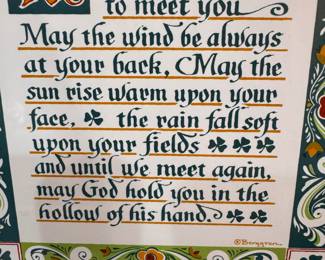 to meet you
May the wind be always
at your back, May the
sun rise warm upon your
face, the rain fall soft
upon your fields
and until we meet again,
may God hold you in the
hollow of his hand.
© Berggren